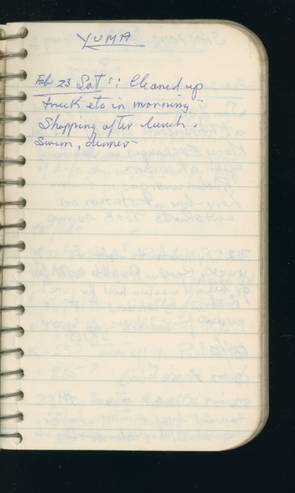 YUMA
Feb 23 Sat :: Cleaned up
truck etc in morning
Shopping after lunch.
Swim, dinner